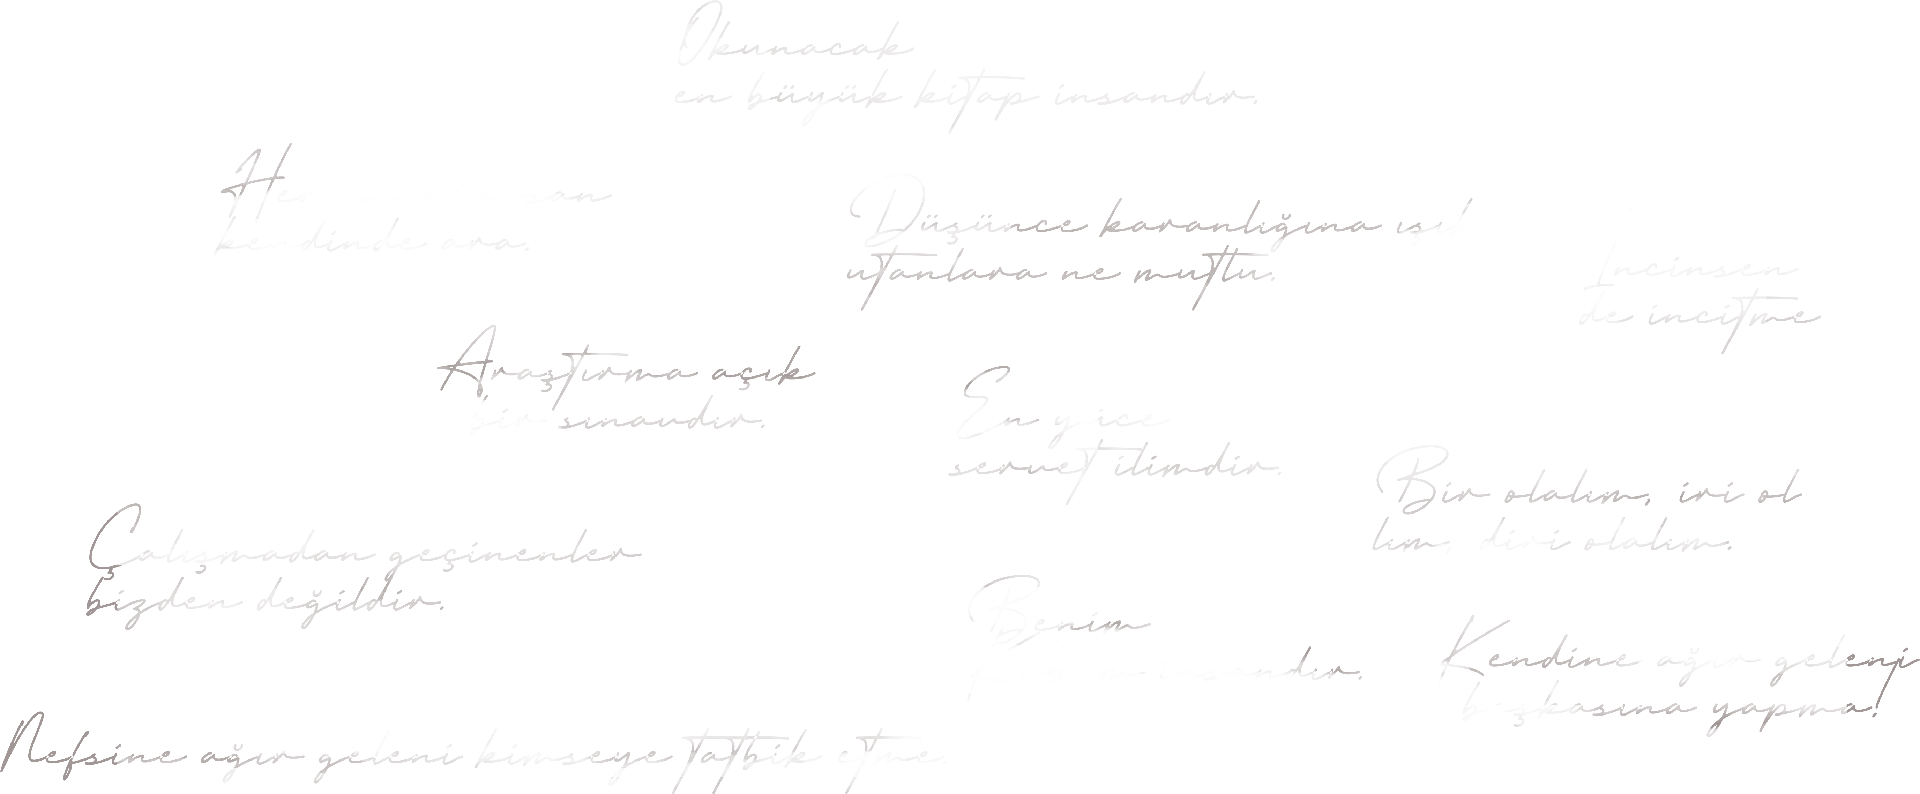 Okunacak
en büyük kitap insandır.
kendinde ara.
Düşünce karanlığına
utanlara ne mutlu.
Incinsen
de incitme
Araştırma açık
bir sınavdır.
En
servet ilimdir.
Bir olalım, iri ol
lım, diri olalım.
Çalışmadan geçinenler
bizden değildir.
Benim
Kendine ağır geleni
başkasına yapma!
Nefsine ağır geleni kimseye tatbik etme.